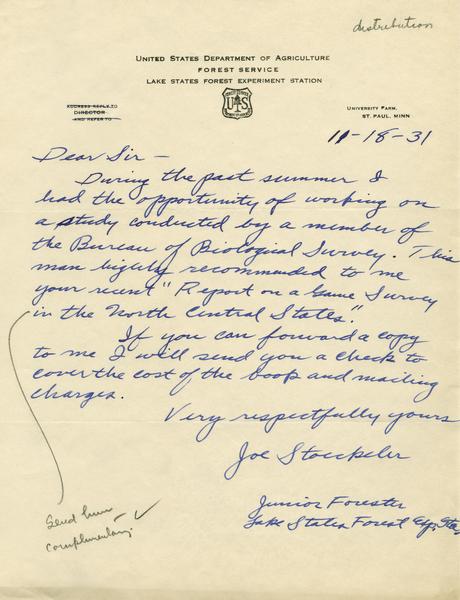 distribution
UNITED STATES DEPARTMENT OF AGRICULTURE
FOREST SERVICE
LAKE STATES FOREST EXPERIMENT STATION
ADDRESS REPLY TO
DIRECTOR
AND REFER TO
FOREST SERVICE
US
DEPARTMENT OF AGRICULTURE
UNIVERSITY FARM,
ST. PAUL, MINN
11-18-31
Dear Sir —
During the past summer I
had the opportunity of working on
a study conducted by a member of
the Bureau of Biological Survey. This
man highly recommended to me
your recent "Report on a Game Survey
in the North Central States."
If you can forward a copy
to me I will send you a check to
cover the cost of the book and mailing
charges.
Very respectfully yours
Joe Stoeckeler
Junior Forester
Lake States Forest Exp. Sta.
Send him
complimentary. ✓